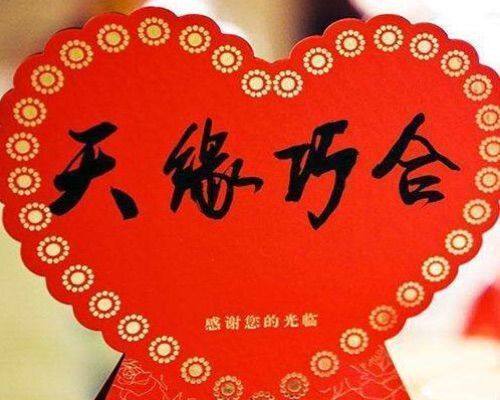 天缘巧合
感谢您的光临